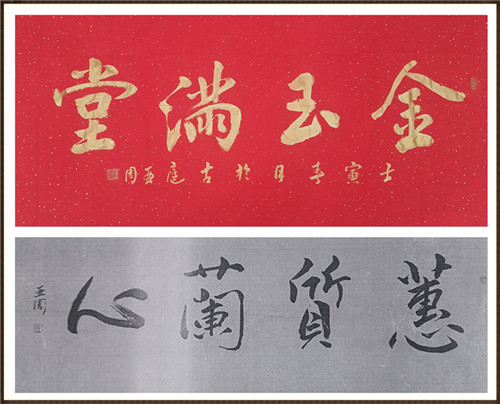 金玉滿堂
壬寅春月於古庭亚周
蕙質蘭心
亚周